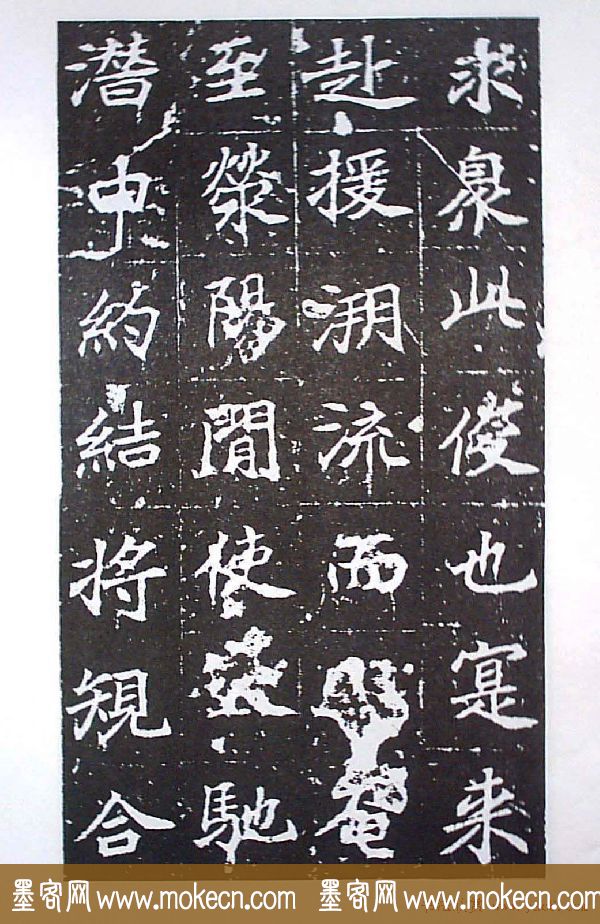 求臮此僾也寔来
赴援溯流而電
至滎陽間使馳
潜申約結将規合
墨客网 www.mokecn.com 墨客网 www.mokecn.com